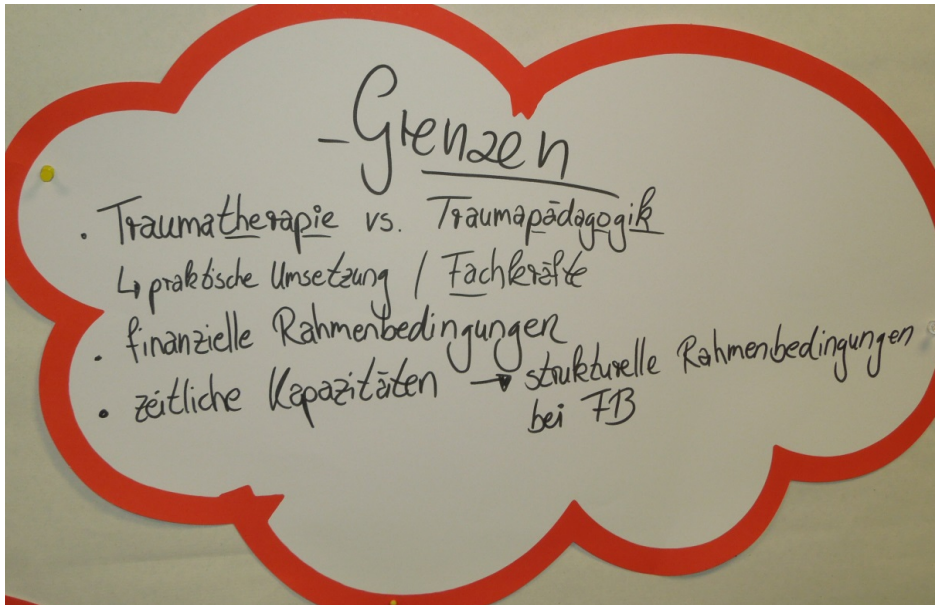 - Grenzen
· Traumatherapie vs. Traumapädagogik
↳ praktische Umsetzung / Fachkräfte
· finanzielle Rahmenbedingungen
· zeitliche Kapazitäten → strukturelle Rahmenbedingungen
bei FB